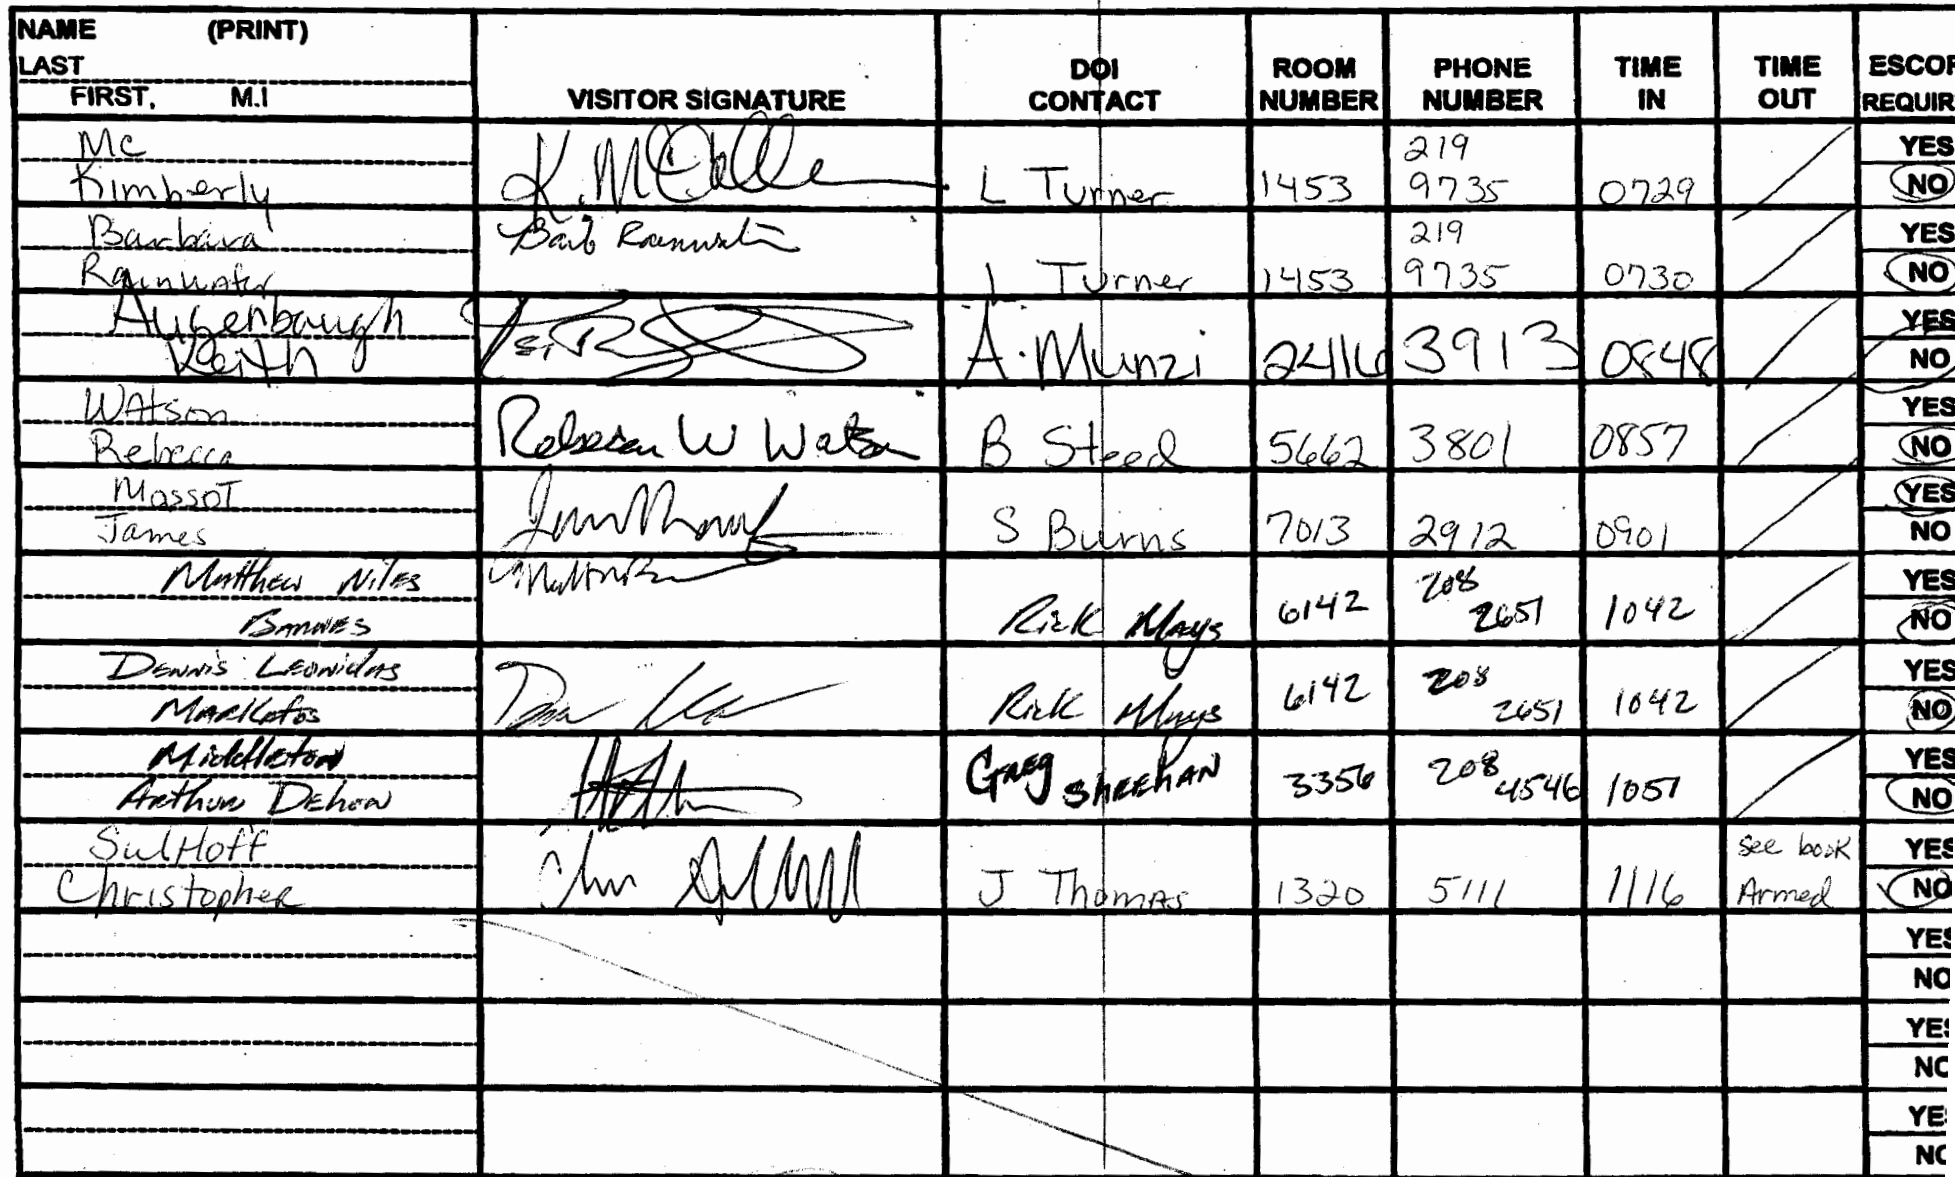 NAME (PRINT)
LAST
FIRST, M.I
VISITOR SIGNATURE
DOI CONTACT
ROOM NUMBER
PHONE NUMBER
TIME IN
TIME OUT
Mc
Kimberly
L Turner 1453 219 9735 0729 YES NO
Barbara
Rainwater
L Turner 1453 219 9735 0730 YES NO
Augenbaugh
Keith
A. Munzi 2416 3913 0848 YES NO
Watson
Rebecca
Rebecca W Watson B Steed 5662 3801 0857 YES NO
Massot
James
S Burns 7013 2912 0901 YES NO
Matthew Niles
Barnes
Rick Mays 6142 208 2651 1042 YES NO
Dennis Leonidas
Markatos
Rick Mays 6142 208 2651 1042 YES NO
Middleton
Arthur Dehon
Greg Sheehan 3356 208 4546 1051 YES NO
Sulhoff
Christopher
J Thomas 1320 5111 1116 see book Armed YES NO
YES
NO